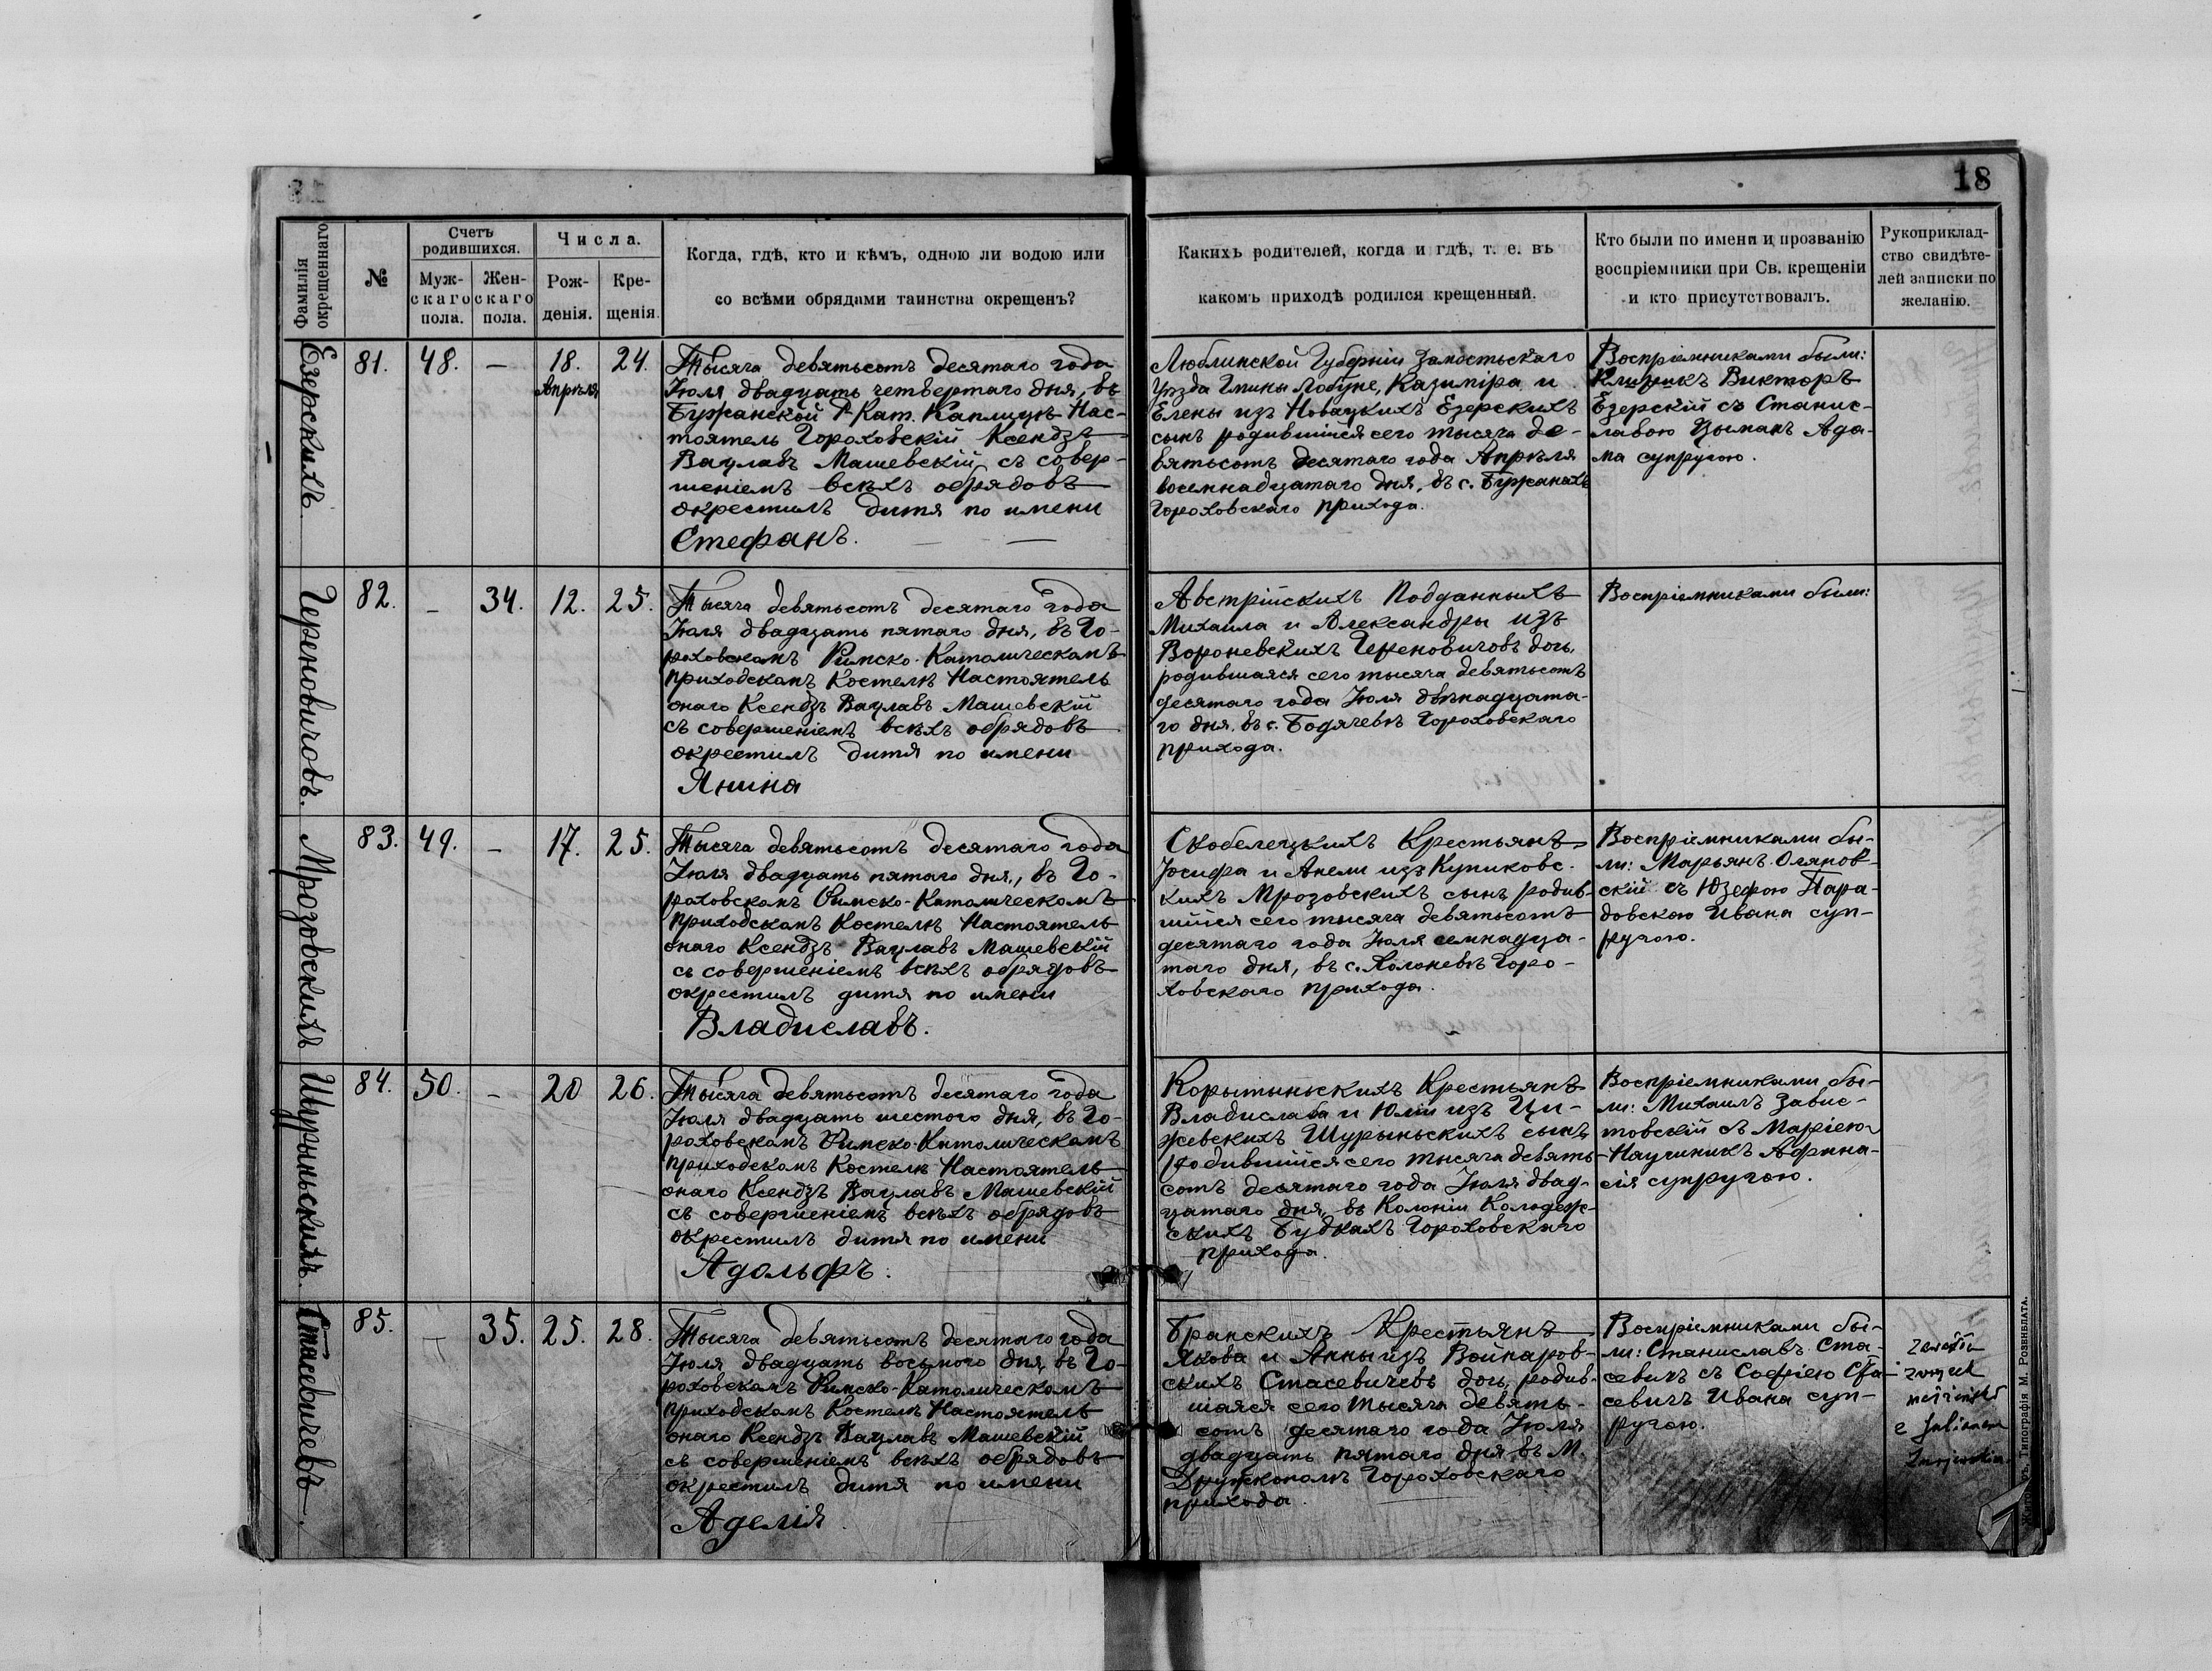 18
Фамилія окрещеннаго
№
Счетъ родившихся.
Муж-
скаго
пола.
Жен-
скаго
пола.
Числа.
Рож-
денія.
Кре-
щенія.
Когда, гдѣ, кто и кѣмъ, одною ли водою или
со всѣми обрядами таинства окрещенъ?
Какихъ родителей, когда и гдѣ, т. е. въ
какомъ приходѣ родился крещенный.
Кто были по имени и прозванію
воспріемники при Св. крещеніи
и кто присутствовалъ.
Рукоприклад-
ство свидѣте-
лей записки по
желанію.
Езерскихъ
81. 48. — 18. 24.
Апрѣля
Тысяча девятьсотъ десятаго года
Іюля двадцать четвертаго дня, въ
Бужанской Р-Кат. Каплицѣ Нас-
тоятель Гороховскій Ксендзъ
Вацлавъ Машевскій съ совер-
шеніемъ всѣхъ обрядовъ
окрестилъ дитя по имени
Стефанъ.
Люблинской Губерніи Замостьскаго
Уѣзда Гмины Лабуне, Казиміра и
Елены изъ Новацкихъ Езерскихъ
сынъ родившійся сего тысяча де-
вятьсотъ десятаго года Апрѣля
восемнадцатаго дня, въ с. Бужанахъ
Гороховскаго прихода.
Воспріемниками были:
Клирикъ Викторъ
Езерскій съ Станис-
лавою Цыманъ Ада-
ма супругою.
Череновичовъ.
82. — 34. 12. 25.
Тысяча девятьсотъ десятаго года
Іюля двадцать пятаго дня, въ Го-
роховскомъ Римско-Католическомъ
приходскомъ Костелѣ Настоятель
онаго Ксендзъ Вацлавъ Машевскій
съ совершеніемъ всѣхъ обрядовъ
окрестилъ дитя по имени
Янина
Австрійскихъ Подданныхъ
Михаила и Александры изъ
Вороневскихъ Череновичовъ дочь,
родившаяся сего тысяча девятьсотъ
десятаго года Іюля двѣнадцата-
го дня, въ с. Бодячевѣ Гороховскаго
прихода.
Воспріемниками были:
Мрозовскихъ
83. 49. — 17. 25.
Тысяча девятьсотъ десятаго года
Іюля двадцать пятаго дня, въ Го-
роховскомъ Римско-Католическомъ
приходскомъ Костелѣ Настоятель
онаго Ксендзъ Вацлавъ Машевскій
съ совершеніемъ всѣхъ обрядовъ
окрестилъ дитя по имени
Владиславъ.
Скобелецкихъ Крестьянъ
Іосифа и Анели изъ Купиковс-
кихъ Мрозовскихъ сынъ родив-
шійся сего тысяча девятьсотъ
десятаго года Іюля семнадца-
таго дня, въ с. Холоневѣ Горо-
ховскаго прихода.
Воспріемниками бы-
ли: Марьянъ
скій съ Юзефою Пара-
довскою Ивана суп-
ругою.
Шурыньскихъ
84. 50. — 20 26.
Тысяча девятьсотъ десятаго года
Іюля двадцать шестого дня, въ Го-
роховскомъ Римско-Католическомъ
приходскомъ Костелѣ Настоятель
онаго Ксендзъ Вацлавъ Машевскій
съ совершеніемъ всѣхъ обрядовъ
окрестилъ дитя по имени
Адольфъ.
Корытыньскихъ Крестьянъ
Владислава и Юліи изъ Ци-
жевскихъ Шурыньскихъ сынъ
родившійся сего тысяча девять-
сотъ десятаго года Іюля двад-
цатаго дня, въ Колоніи Колодеж-
скихъ Будкахъ Гороховскаго
прихода.
Воспріемниками бы-
ли: Михаилъ Завис-
товскій съ Маріею
Научникъ Афана-
сія супругою.
Стасевичевъ.
85. — 35. 25. 28.
Тысяча девятьсотъ десятаго года
Іюля двадцать восьмого дня, въ Го-
роховскомъ Римско-Католическомъ
приходскомъ Костелѣ Настоятель
онаго Ксендзъ Вацлавъ Машевскій
съ совершеніемъ всѣхъ обрядовъ
окрестилъ дитя по имени
Аделія
Бранскихъ Крестьянъ
Якова и Анны изъ Войнаров-
скихъ Стасевичевъ дочь, родив-
шаяся сего тысяча девять-
сотъ десятаго года Іюля
двадцать пятаго дня, въ М.
Дружкополѣ Гороховскаго
прихода.
Воспріемниками бы-
ли: Станиславъ Ста-
севичъ съ Софіею Ста-
севичъ Ивана суп-
ругою.
Типографія М. Розенблата.